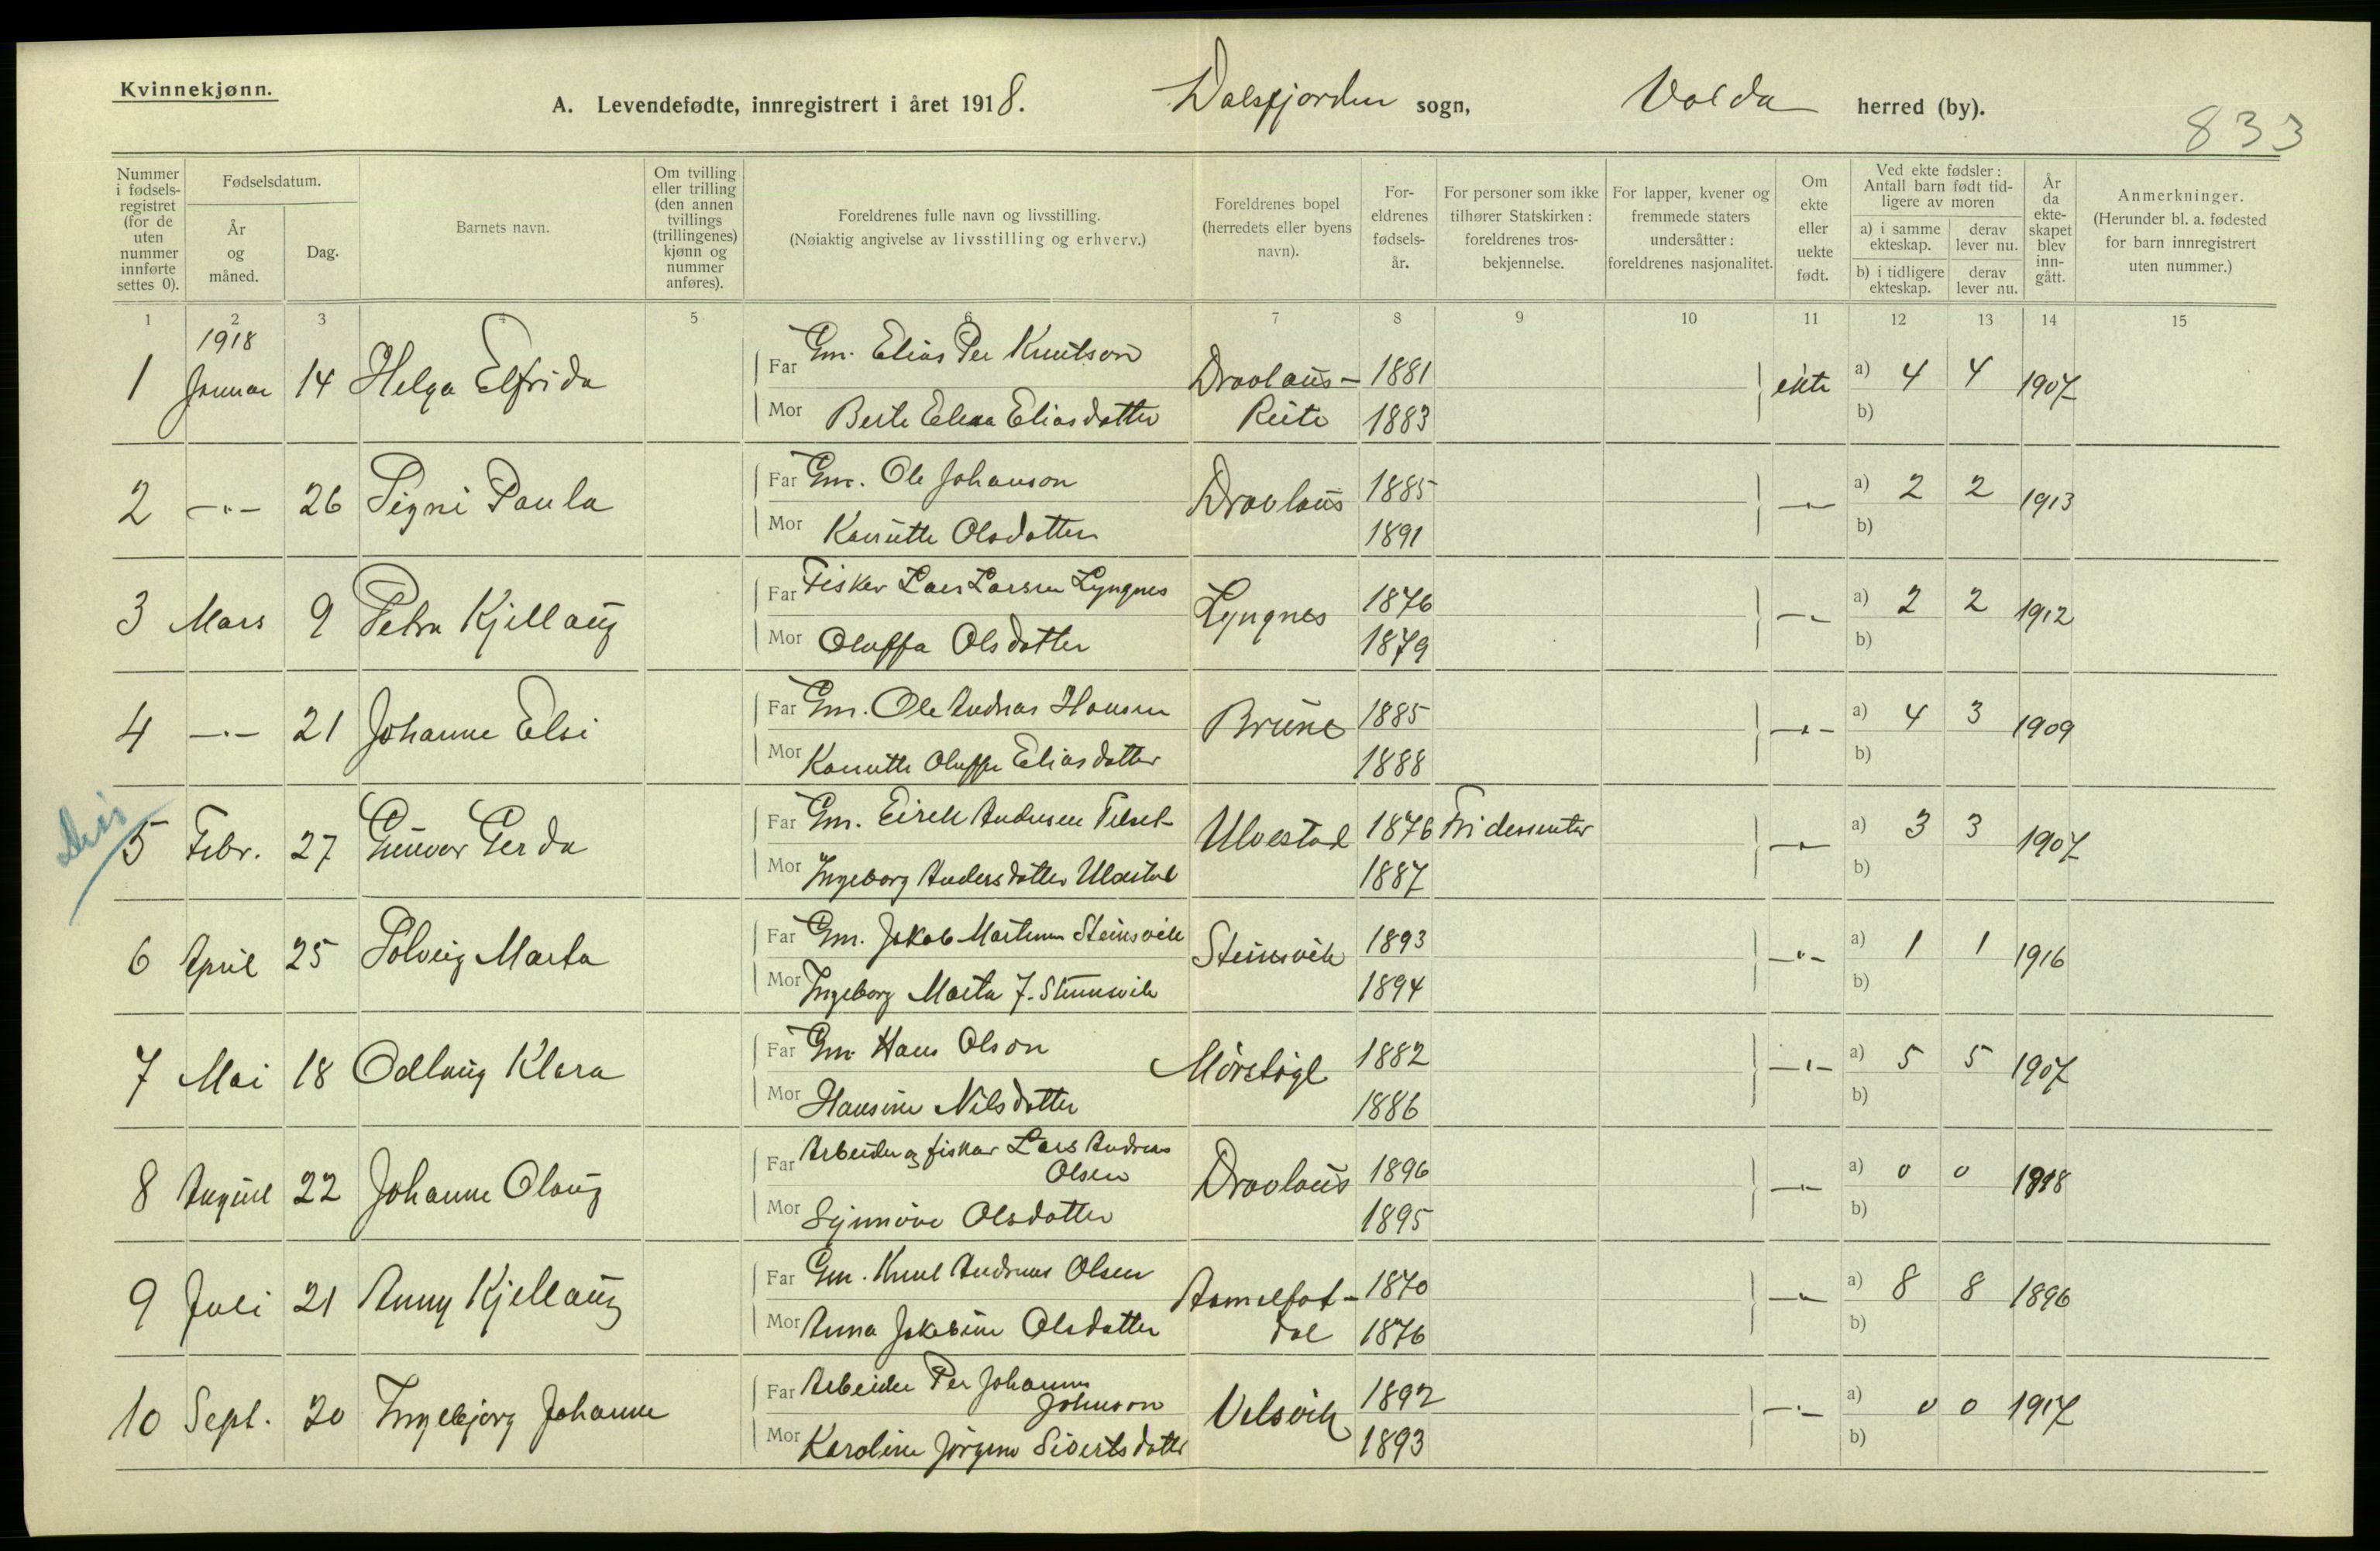 Kvinnekjønn.
A. Levendefødte, innregistrert i året 1918. Dalsfjorden sogn, Volda herred (by).
833
Nummer i fødsels-registret (for de uten nummer innførte settes 0).
Fødselsdatum.
År og måned.
Dag.
Barnets navn.
Om tvilling eller trilling (den annen tvillings (trillingenes) kjønn og nummer anføres).
Foreldrenes fulle navn og livsstilling.
(Nøiaktig angivelse av livsstilling og erhverv.)
Foreldrenes bopel (herredets eller byens navn).
For-eldrenes fødsels-år.
For personer som ikke tilhører Statskirken: foreldrenes tros-bekjennelse.
For lapper, kvener og fremmede staters undersåtter: foreldrenes nasjonalitet.
Om ekte eller uekte født.
Ved ekte fødsler: Antall barn født tid-ligere av moren
a) i samme ekteskap.
derav lever nu.
b) i tidligere ekteskap.
derav lever nu.
År da ekte-skapet blev inn-gått.
Anmerkninger.
(Herunder bl. a. fødested for barn innregistrert uten nummer.)
1 2 3 4 5 6 7 8 9 10 11 12 13 14 15
1918
1 Januar 14 Helga Elfrida Far Gm. Elias Per Knutson Dravlaus- 1881 ekte a) 4 4 1907
Mor Berte Elena Eliasdatter Reite 1883 b)
2 -"- 26 Signi Paula Far Gm. Ole Johanson Dravlaus 1885 -"- a) 2 2 1913
Mor Knutte Olsdatter 1891 b)
3 Mars 9 Petra Kjellaug Far Fisker Lars Larsen Lyngnes Lyngnes 1876 -"- a) 2 2 1912
Mor Oluffa Olsdatter 1879 b)
4 -"- 21 Johanne Elsi Far Gm. Ole Andreas Hansen Brune 1885 -"- a) 4 3 1909
Mor Oluffa Eliasdatter 1888 b)
Dis
5 Febr. 27 Gunvor Gerda Far Gm. Eirik Andersen Ulvestad 1876 Fri dessenter -"- a) 3 3 1907
Mor Ingeborg Andersdatter Ulvestad 1887 b)
6 April 25 Solveig Marta Far Gm. Jakob Martinus Steinsvik Steinsvik 1893 -"- a) 1 1 1916
Mor Ingeborg Marta J. Steinsvik 1894 b)
7 Mai 18 Odlaug Klara Far Gm. Hans Olson Mörstøyl 1882 -"- a) 5 5 1907
Mor Hansine Nilsdatter 1886 b)
8 August 22 Johanne Olaug Far Arbeider og fisker Lars Andreas
Olsen Dravlaus 1896 -"- a) 0 0 1918
Mor Synnöve Olsdatter 1895 b)
9 Juli 21 Anny Kjellaug Far Gm. Knut Andreas Olsen Aamelfot- 1870 -"- a) 8 8 1896
Mor Anna Jakobine Olsdatter dal 1876 b)
10 Sept. 20 Ingebjørg Johanne Far Arbeider Per Johannes
Johnson Velsvik 1892 -"- a) 0 0 1917
Mor Karoline Jörgine Sivertsdatter 1893 b)